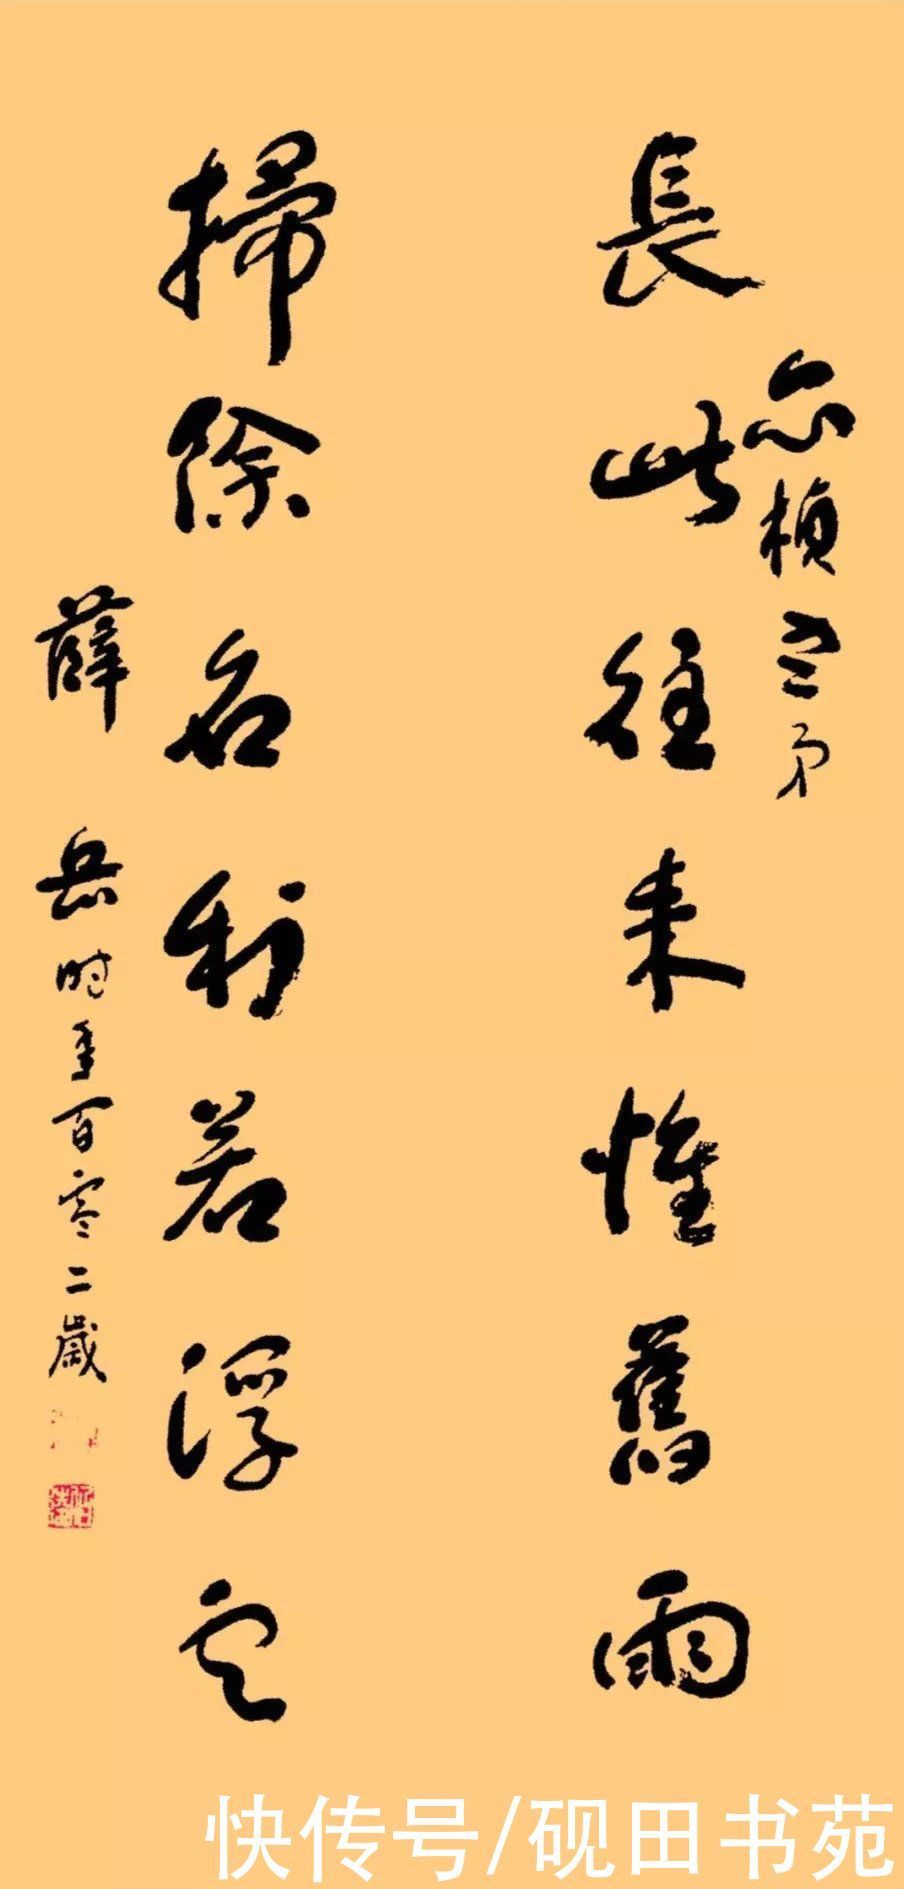 楨弟
長此往來惟舊雨
掃除名利若浮雲
薛岳時年百零二歲
快传号/砚田书苑